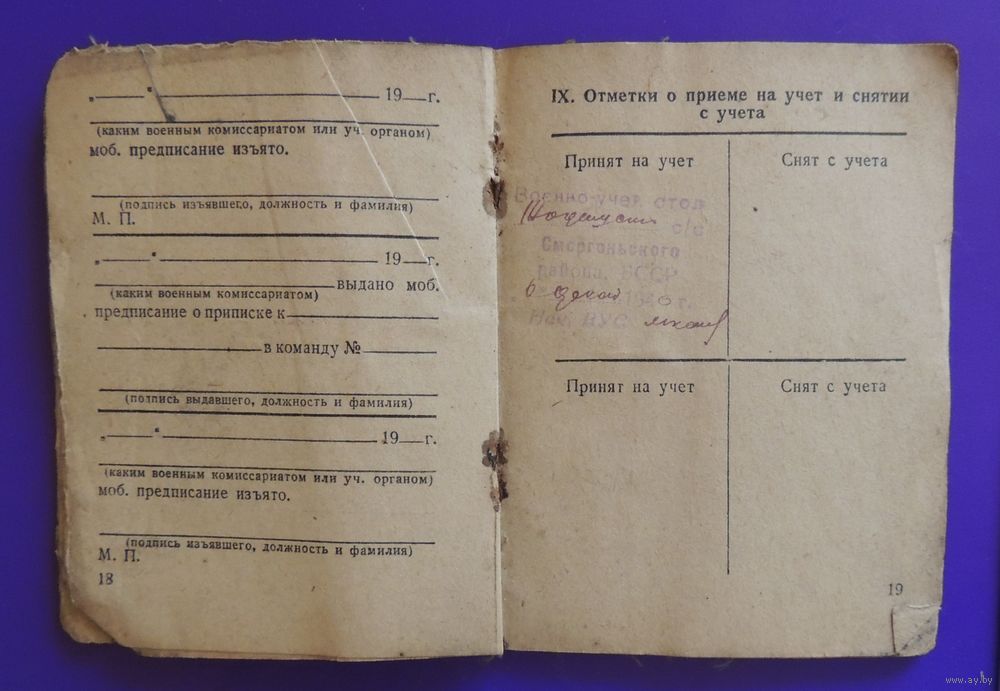 „——“—————— 19——г.
(каким военным комиссариатом или уч. органом)
моб. предписание изъято.
(подпись изъявшего, должность и фамилия)
М. П.
„——“—————— 19——г.
выдано моб.
(каким военным комиссариатом)
предписание о приписке к
в команду №
(подпись выдавшего, должность и фамилия)
„——“—————— 19——г.
(каким военным комиссариатом или уч. органом)
моб. предписание изъято.
(подпись изъявшего, должность и фамилия)
М. П.
18
IX. Отметки о приеме на учет и снятии
с учета
Принят на учет
Снят с учета
Военно-учет. стол
с/с
Сморгоньского
района, БССР
6 194 г.
Нач. ВУС
Принят на учет
Снят с учета
19
www.ay.by